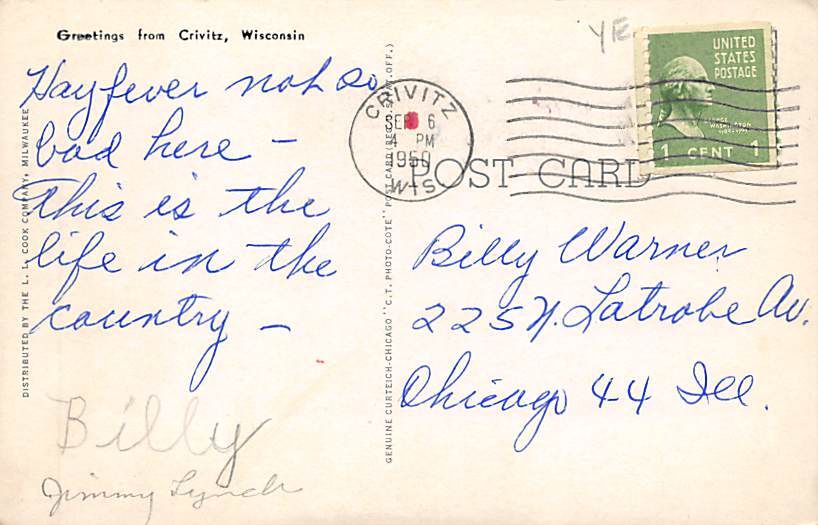 Greetings from Crivitz, Wisconsin
YE
Hayfever not so
bad here -
This is the
life in the
country -
Billy
Jimmy Lynch
DISTRIBUTED BY THE L. L. COOK COMPANY, MILWAUKEE
GENUINE CURTEICH-CHICAGO "C.T. PHOTO-COTE" POST CARD (REG. U.S. PAT. OFF.)
CRIVITZ
SEP 6
4 PM
1950
WIS.
UNITED
STATES
POSTAGE
WASHINGTON
1 CENT 1
POST CARD
Billy Warner
225 N. Latrobe Av.
Chicago 44 Ill.